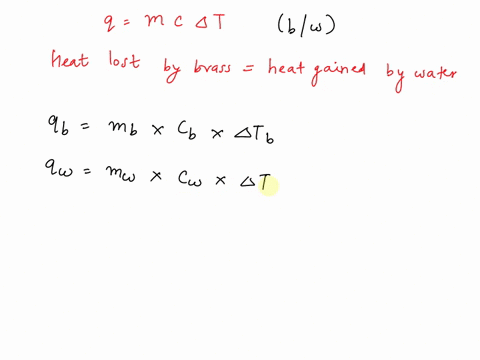 q = m c ΔT (b/w)
Heat lost by brass = heat gained by water
q_b = m_b × C_b × ΔT_b
q_w = m_w × C_w × ΔT